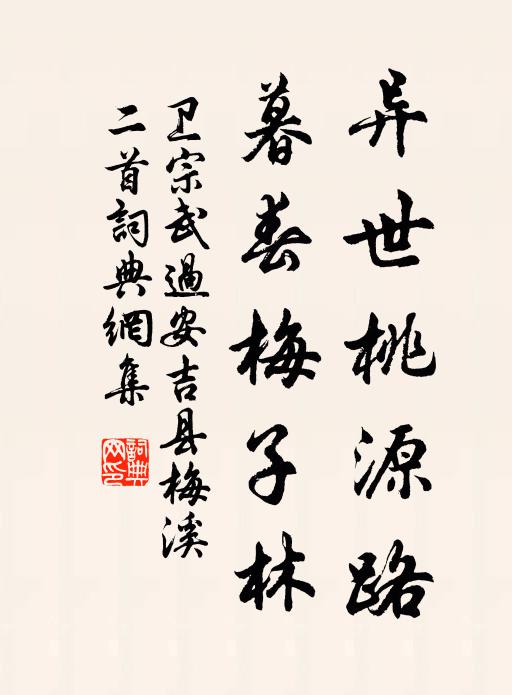 异世桃源路
暮春梅子林
卫宗武過安吉县梅溪
二首詞典網集
詞典
网印